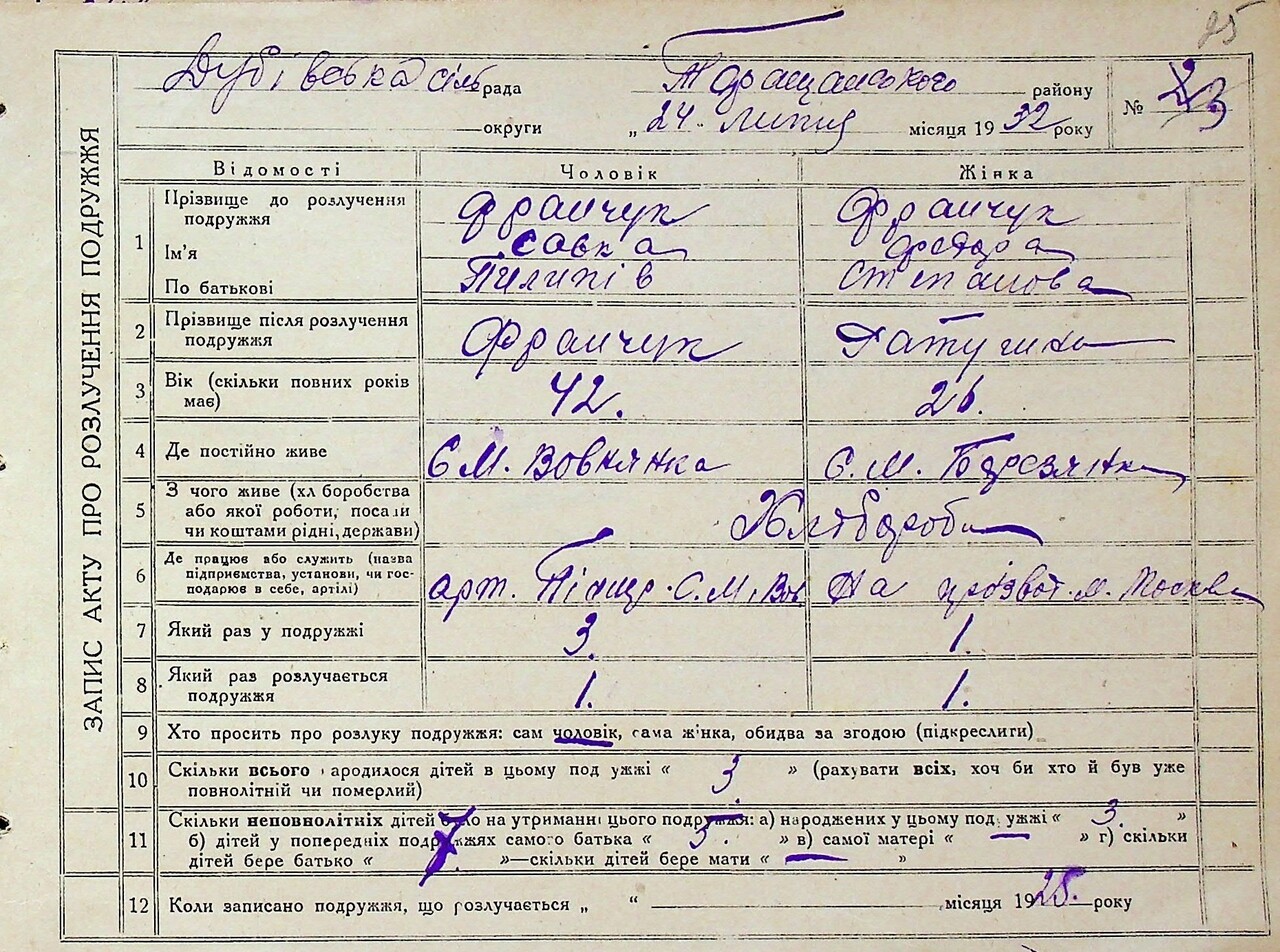 25
Дубівська сіль рада Таращанського району № 23
округи „ 24 липня місяця 1932 року
ЗАПИС АКТУ ПРО РОЗЛУЧЕННЯ ПОДРУЖЖЯ
Відомості Чоловік Жінка
1 Прізвище до розлучення подружжя Франчук Франчук
Ім'я Савка Федора
По батькові Пилипів Степанова
2 Прізвище після розлучення подружжя Франчук
3 Вік (скільки повних років має) 42. 26.
4 Де постійно живе С М. Вовнянка С. М. Березянка
5 З чого живе (хл боробства або якої роботи, посади чи коштами рідні, держави) Хлібороби
6 Де працює або служить (назва підприємства, установи, чи господарює в себе, артілі) арт. С. М. Вов На м. Москва
7 Який раз у подружжі 3. 1.
8 Який раз розлучається подружжя 1. 1.
9 Хто просить про розлуку подружжя: сам чоловік, сама ж'нка, обидва за згодою (підкреслити)
10 Скільки всього ародилося дітей в цьому под ужжі « 3. » (рахувати всіх, хоч би хто й був уже
повнолітній чи померлий)
11 Скільки неповнолітніх дітей було на утриманні цього подружжя: а) народжених у цьому под ужжі « 3. »
б) дітей у попередніх подружжях самого батька « 3. » в) самої матері « — » г) скільки
дітей бере батько « 7 »—скільки дітей бере мати « — »
12 Коли записано подружжя, що розлучається „ “ місяця 1925. року